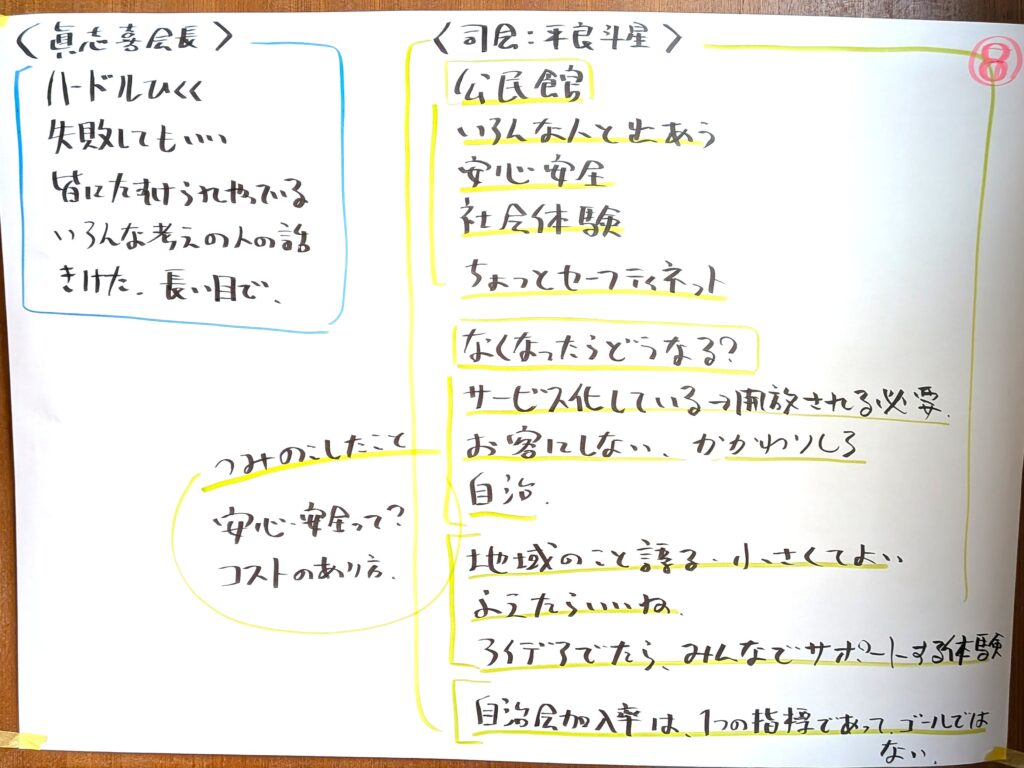 〈眞志喜会長〉
ハードルひくく
失敗してもいい
皆にたすけられやっている
いろんな考えの人の話
きけた.長い目で.
〈司会:平良斗星〉
⑧
公民館
いろんな人と出あう
安心・安全
社会体験
ちょっとセーフティネット
なくなったらどうなる?
サービス化している→開放される必要.
お客にしない、かかわりしろ
自治.
つみのこしたこと
安心・安全って?
コストのあり方.
地域のこと語る・小さくてよい
ようたらいいね.
アイデアでたら、みんなでサポートする体験
自治会加入率は、1つの指標であって、ゴールでは
ない.